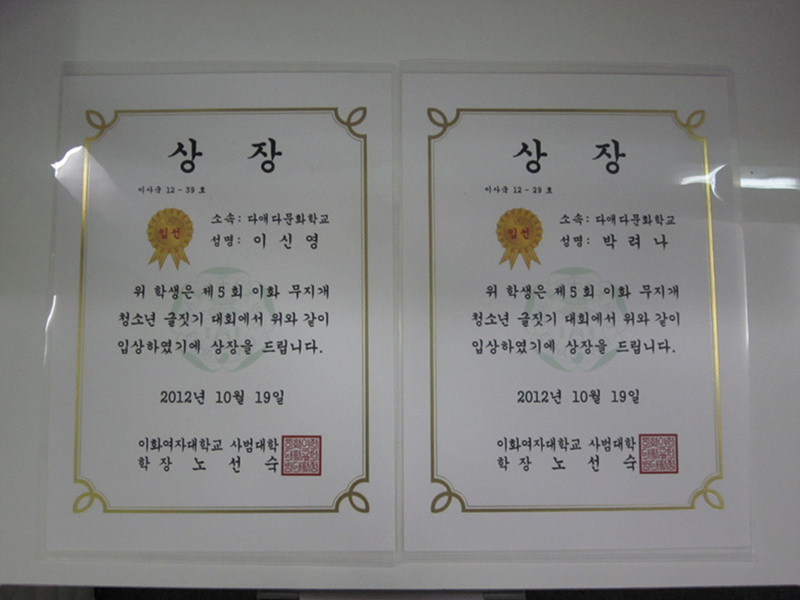 상 장
이사글 12 - 39 호
입선
소속: 다애다문화학교
성명: 이 신 영
위 학생은 제5회 이화 무지개
청소년 글짓기 대회에서 위와 같이
입상하였기에 상장을 드립니다.
2012년 10월 19일
이화여자대학교 사범대학
학 장 노 선 숙
상 장
이사글 12 - 29 호
입선
소속: 다애다문화학교
성명: 박 려 나
위 학생은 제5회 이화 무지개
청소년 글짓기 대회에서 위와 같이
입상하였기에 상장을 드립니다.
2012년 10월 19일
이화여자대학교 사범대학
학 장 노 선 숙